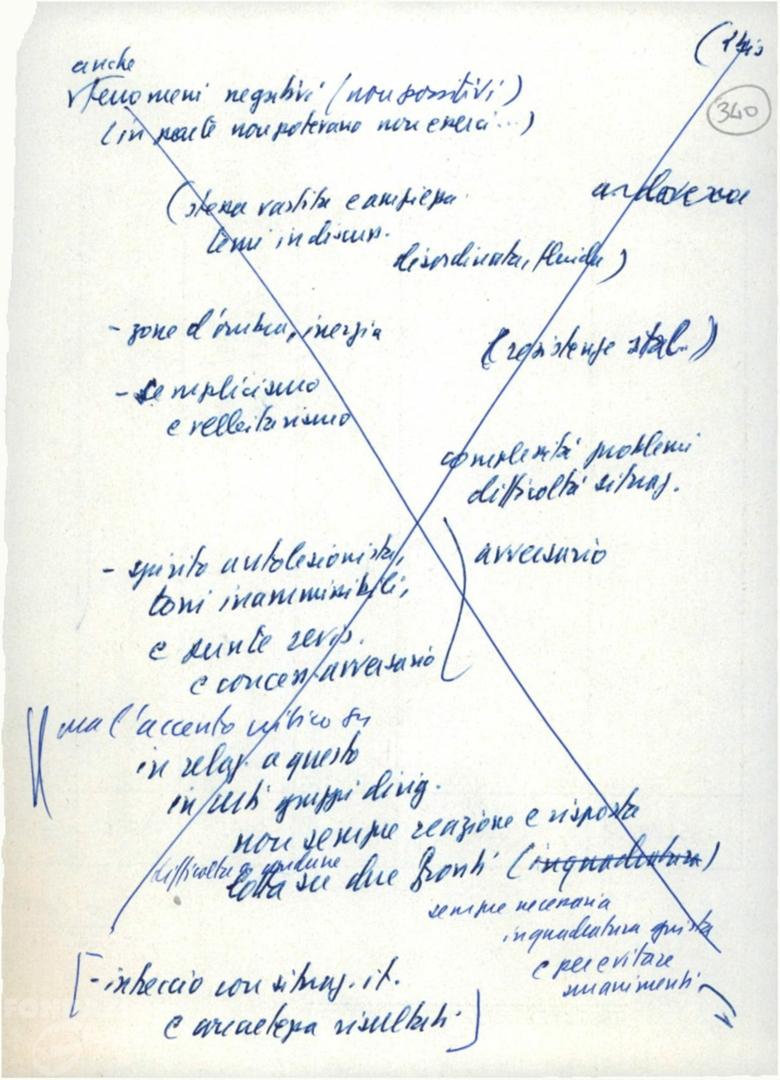 (14bis
340
anche
fenomeni negativi (non positivi)
(in parte non potevano non esserci...)
(stessa vastità e ampiezza
temi in discuss.
disordinata, fluida)
- zone d'ombra, inerzia
(resistenze stal..)
- semplicismo
e velleitarismo
complessità problemi
difficoltà situaz.
- spirito autolesionista,
toni inammissibili,
e punte revis.
e concess. avversario
avversario
ma l'accento critico su
in relaz. a questo
in certi gruppi dirig.
non sempre reazione e risposta
difficoltà a condurre
lotta su due fronti (inquadratura)
sempre necessaria
inquadratura giusta
e per evitare
- intreccio con situaz. it.
e arretratezza risultati